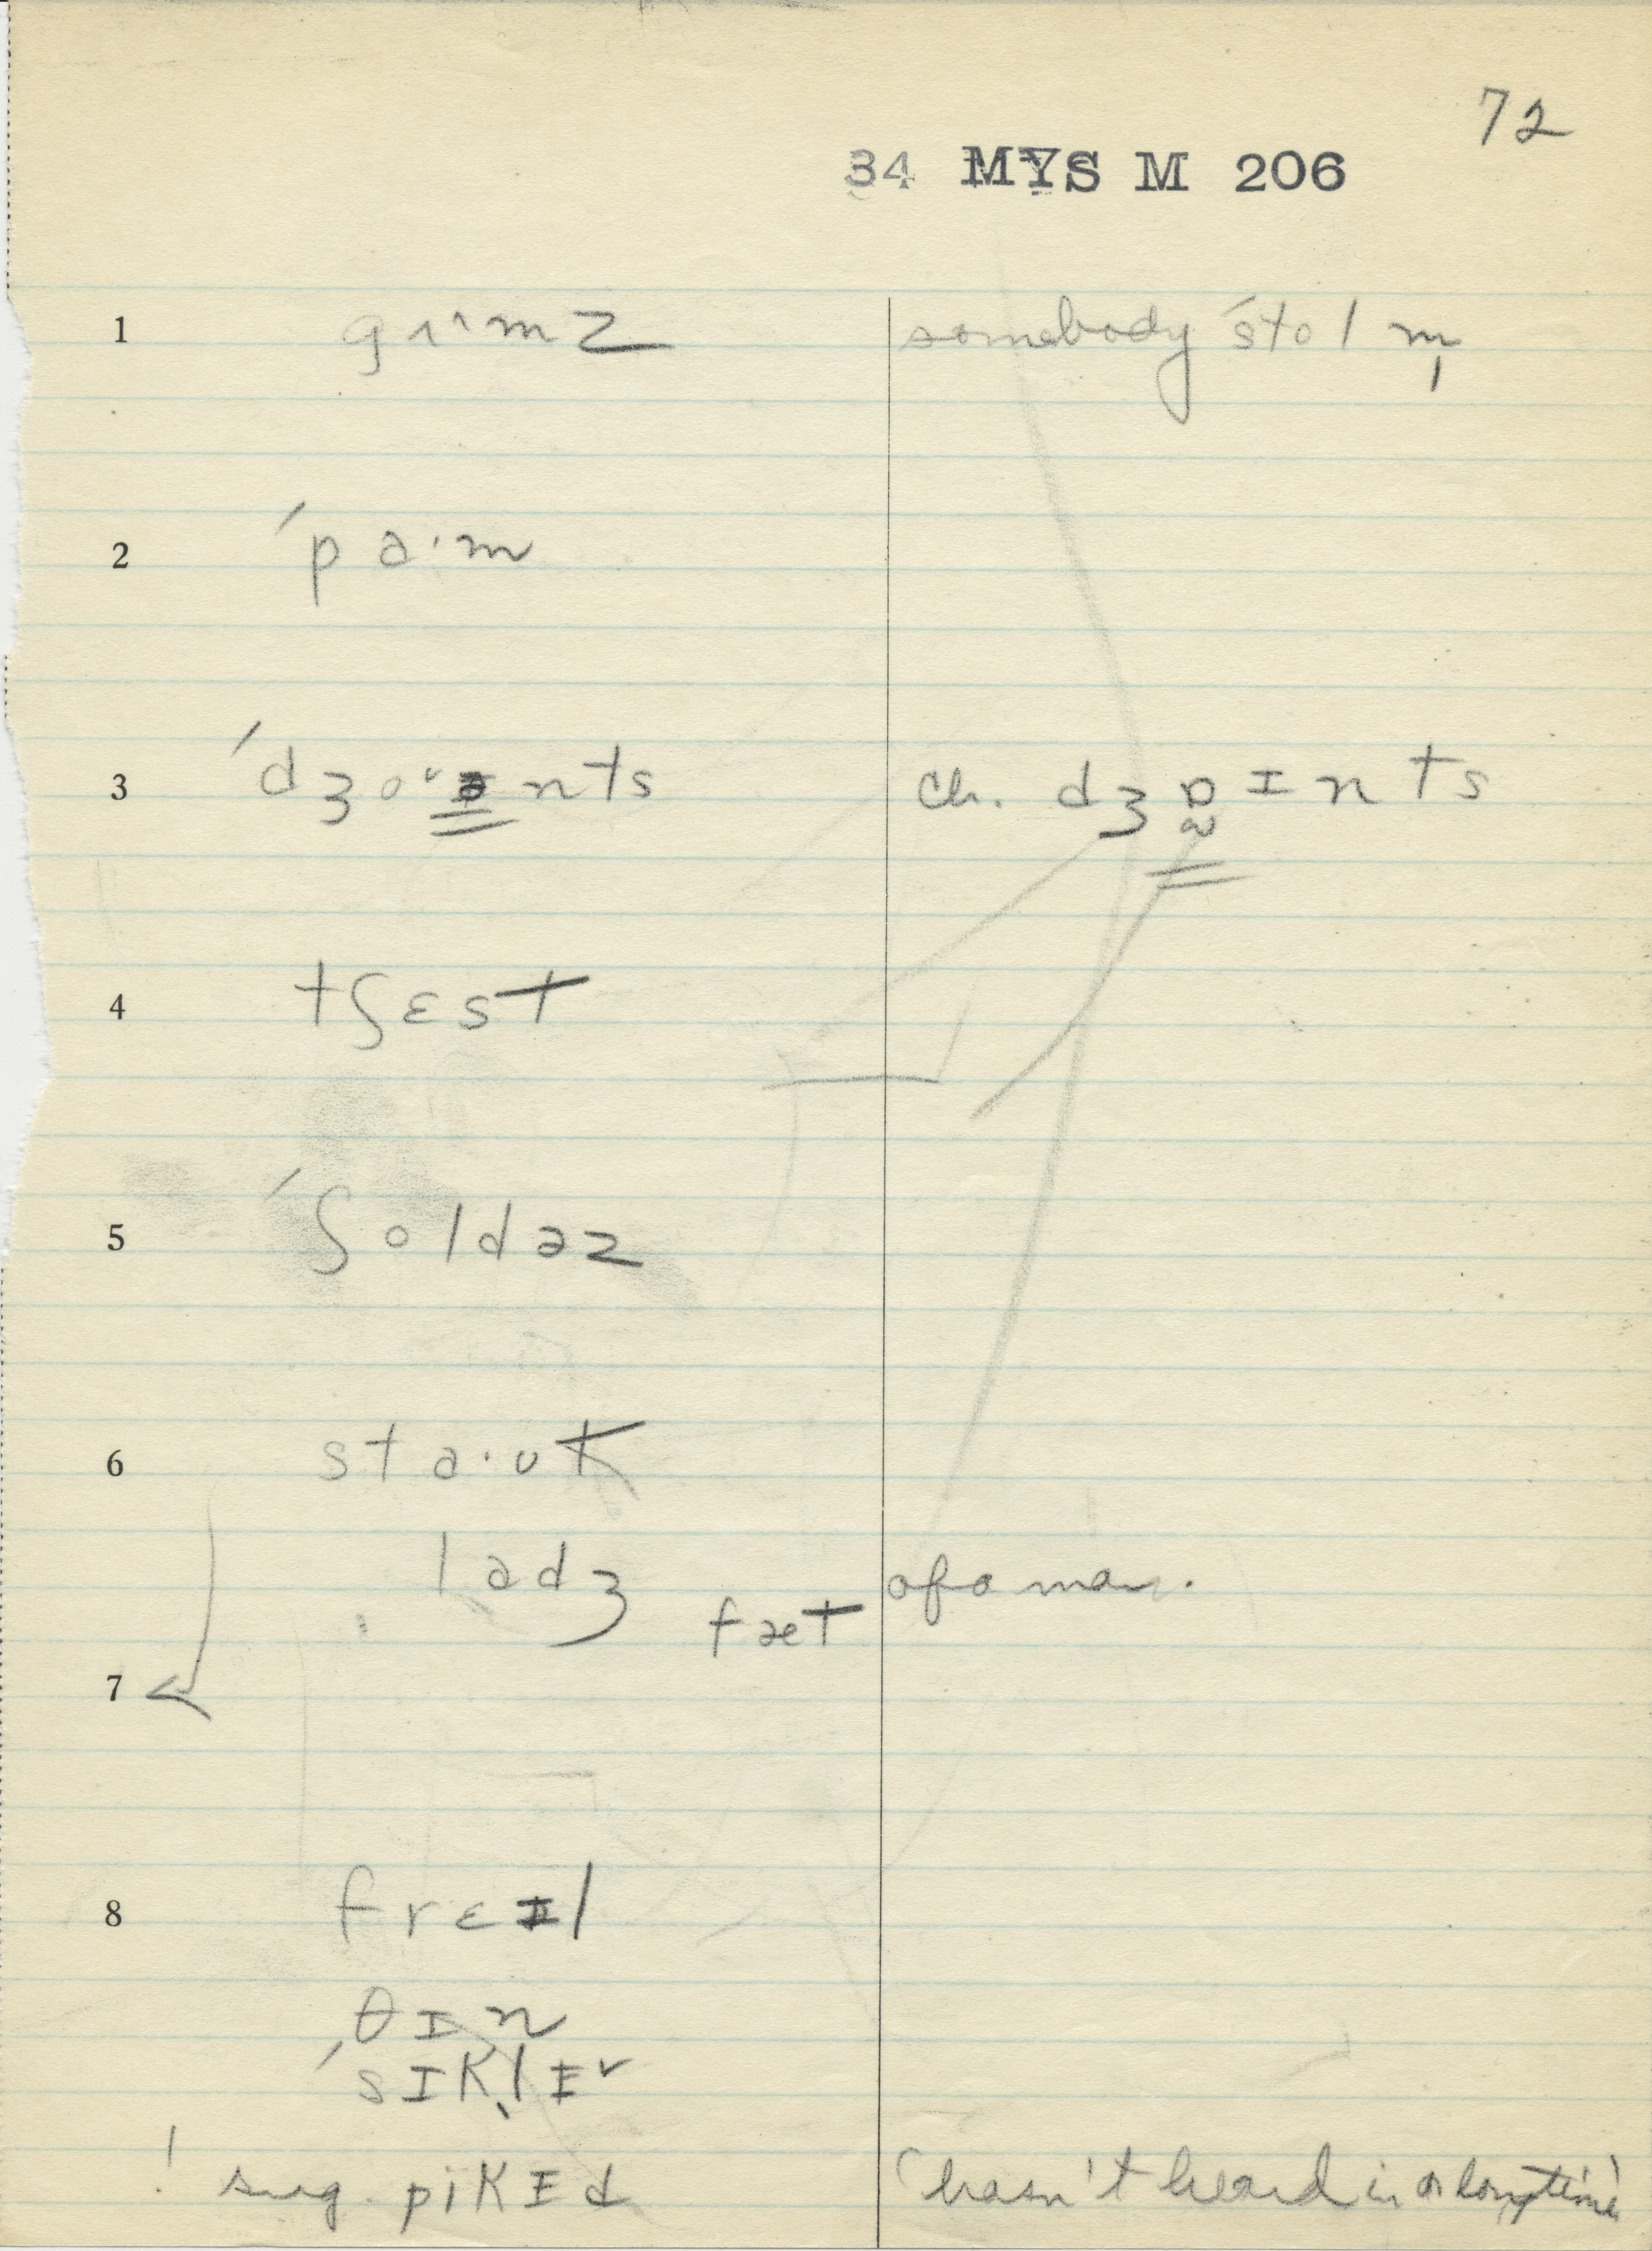 72
34 MYS M 206
1 gʌ˄mz somebody ˊstolm̩
2 ˊpa·m
3 ˊdʒo˅ɪnts ch. dʒɒɪnts
4 tʃɛst
5 ˊʃoldəz
6 sta·ʊk
ladʒ fæt of a man.
7
8 frɛɨl
θɪn
ˊsɪkl̩ɨ˅
! sug. pikɨd (hasn't heard in a long time)